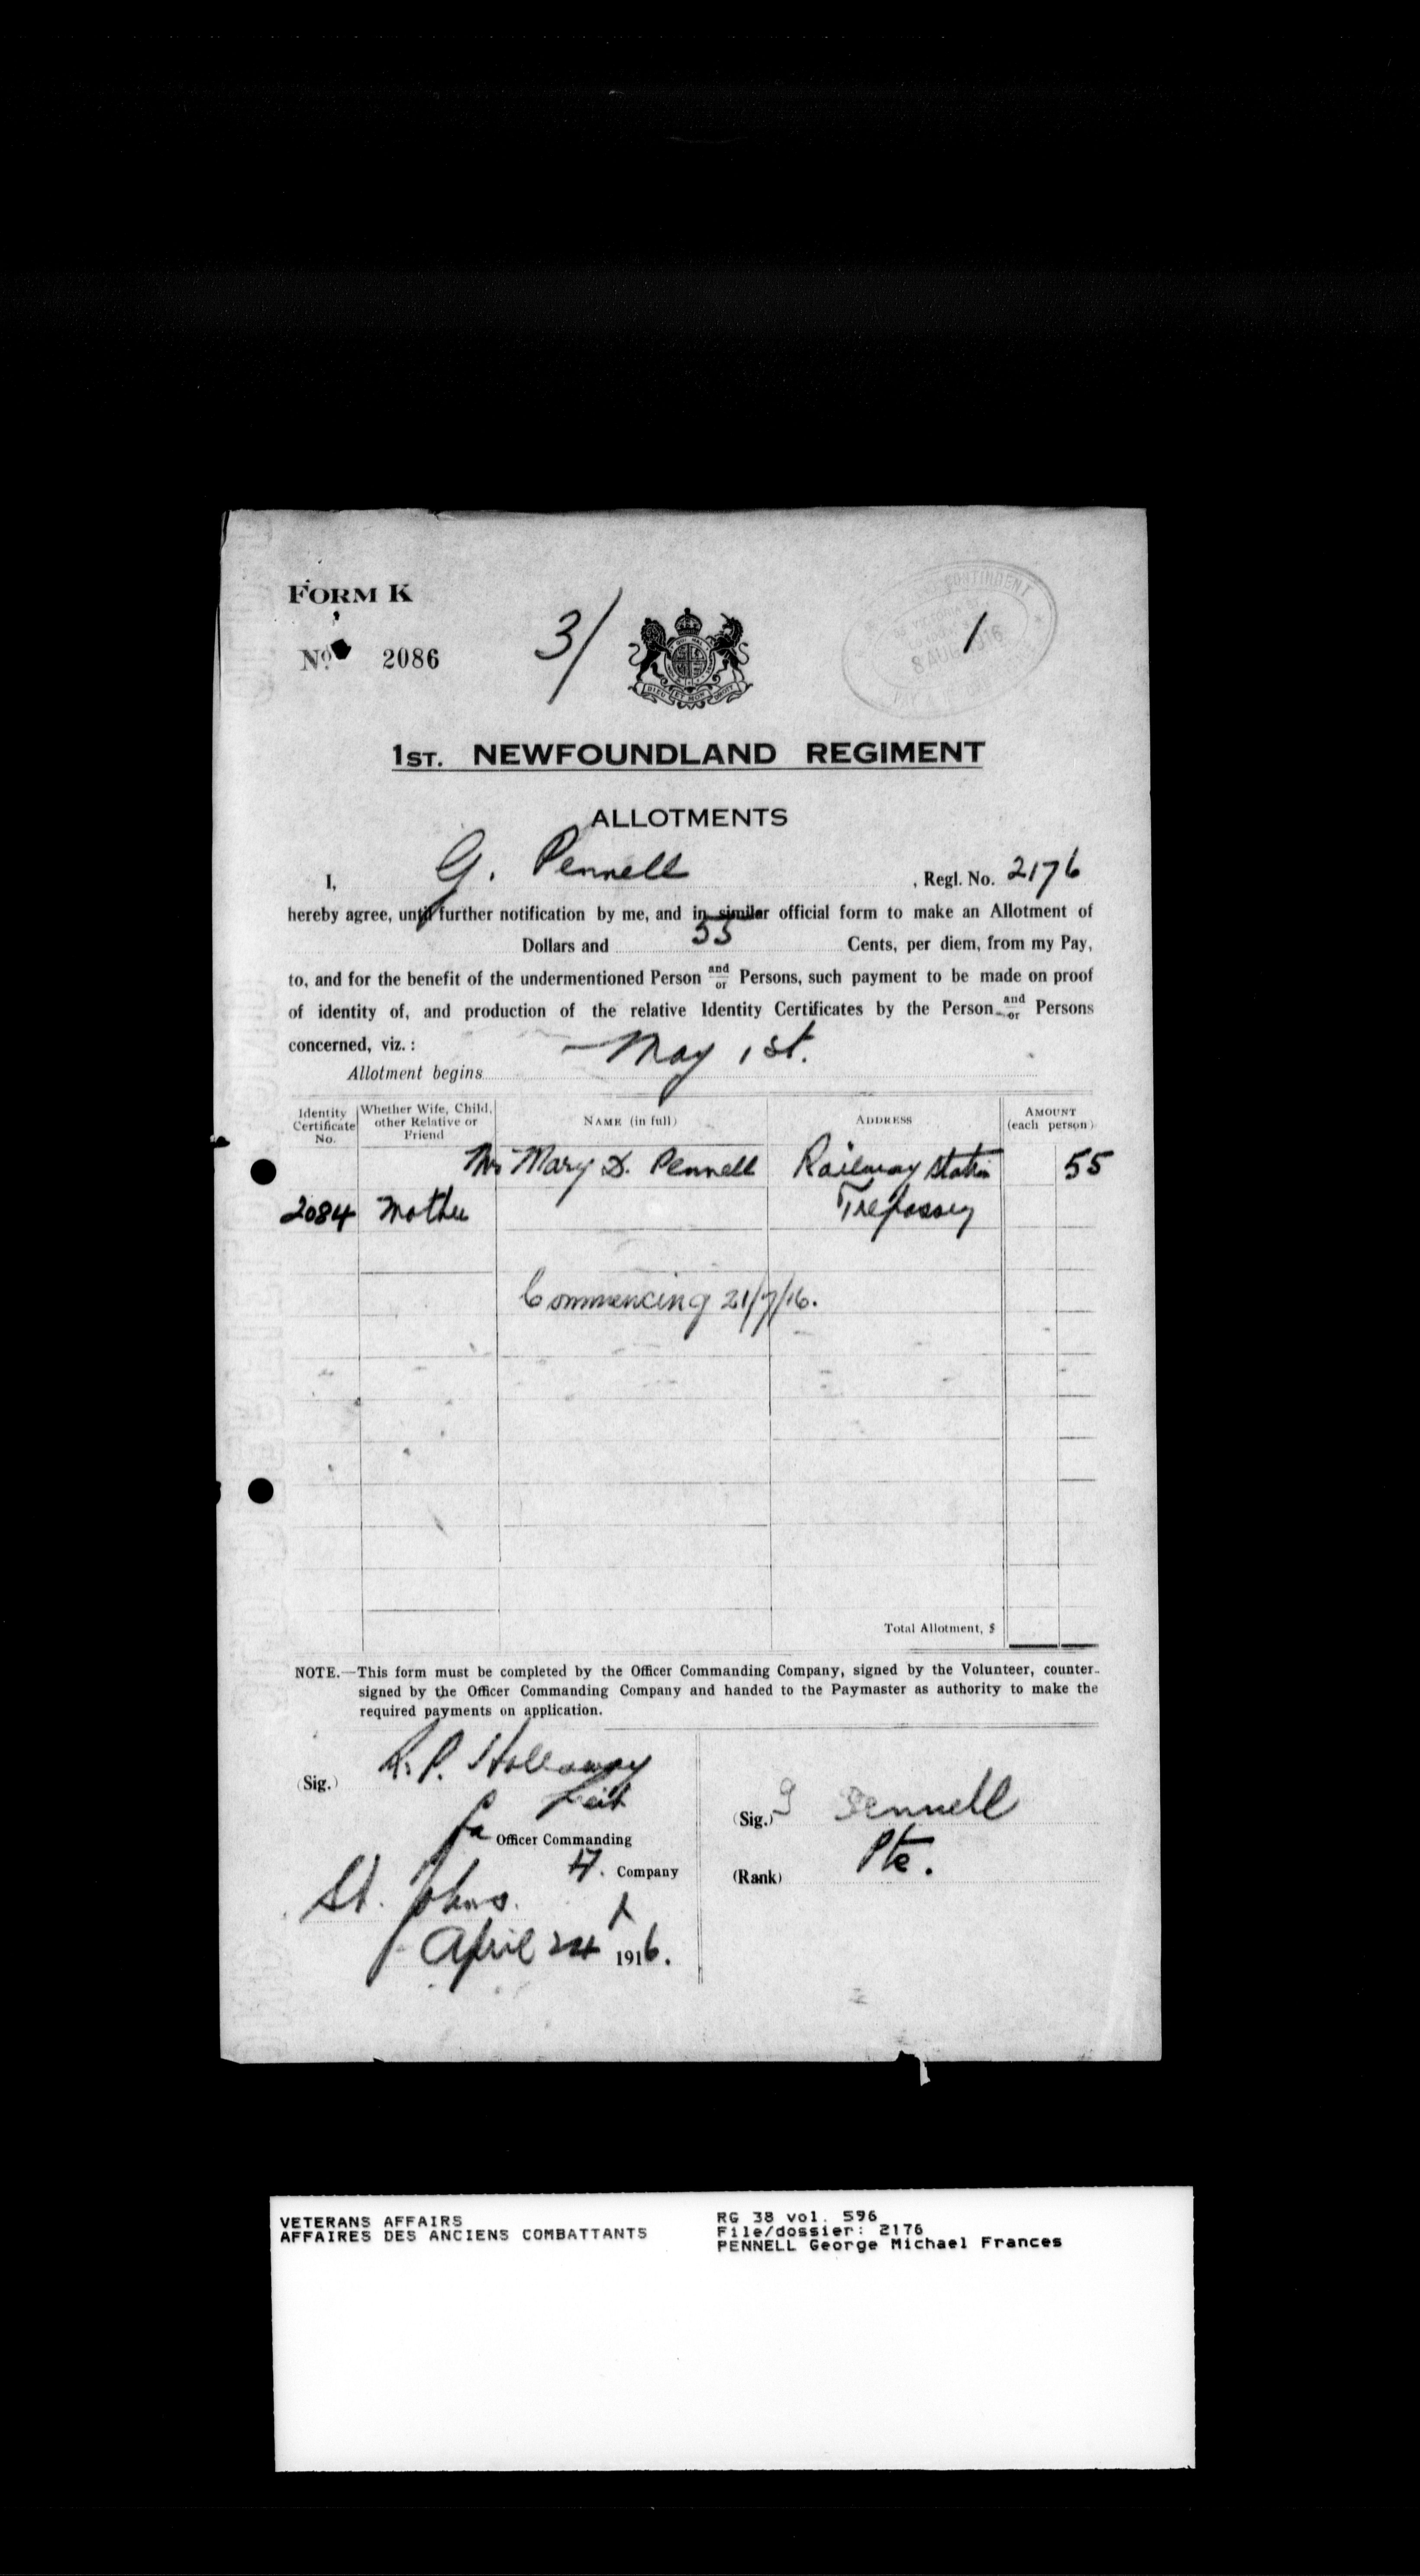 FORM K
3/
1
No. 2086
CONTINGENT
8 AUG 1916
DIEU ET MON DROIT
1ST. NEWFOUNDLAND REGIMENT
ALLOTMENTS
I, G. Pennell, Regl. No. 2176
hereby agree, until further notification by me, and in similar official form to make an Allotment of
Dollars and 55 Cents, per diem, from my Pay,
to, and for the benefit of the undermentioned Person and/or Persons, such payment to be made on proof
of identity of, and production of the relative Identity Certificates by the Person and/or Persons
concerned, viz. :
Allotment begins May 1st.
Identity Certificate No. Whether Wife, Child, other Relative or Friend NAME (in full) ADDRESS AMOUNT (each person)
Mrs Mary D. Pennell Railway Station 55
2084 Mother Trepassey
Commencing 21/7/16.
Total Allotment, $
NOTE.—This form must be completed by the Officer Commanding Company, signed by the Volunteer, counter-
signed by the Officer Commanding Company and handed to the Paymaster as authority to make the
required payments on application.
(Sig.) R. P. Holloway
Officer Commanding
H. Company
St. Johns.
April 24 1916.
(Sig.) G Pennell
(Rank) Pte.
VETERANS AFFAIRS
AFFAIRES DES ANCIENS COMBATTANTS
RG 38 vol. 596
File/dossier: 2176
PENNELL George Michael Frances